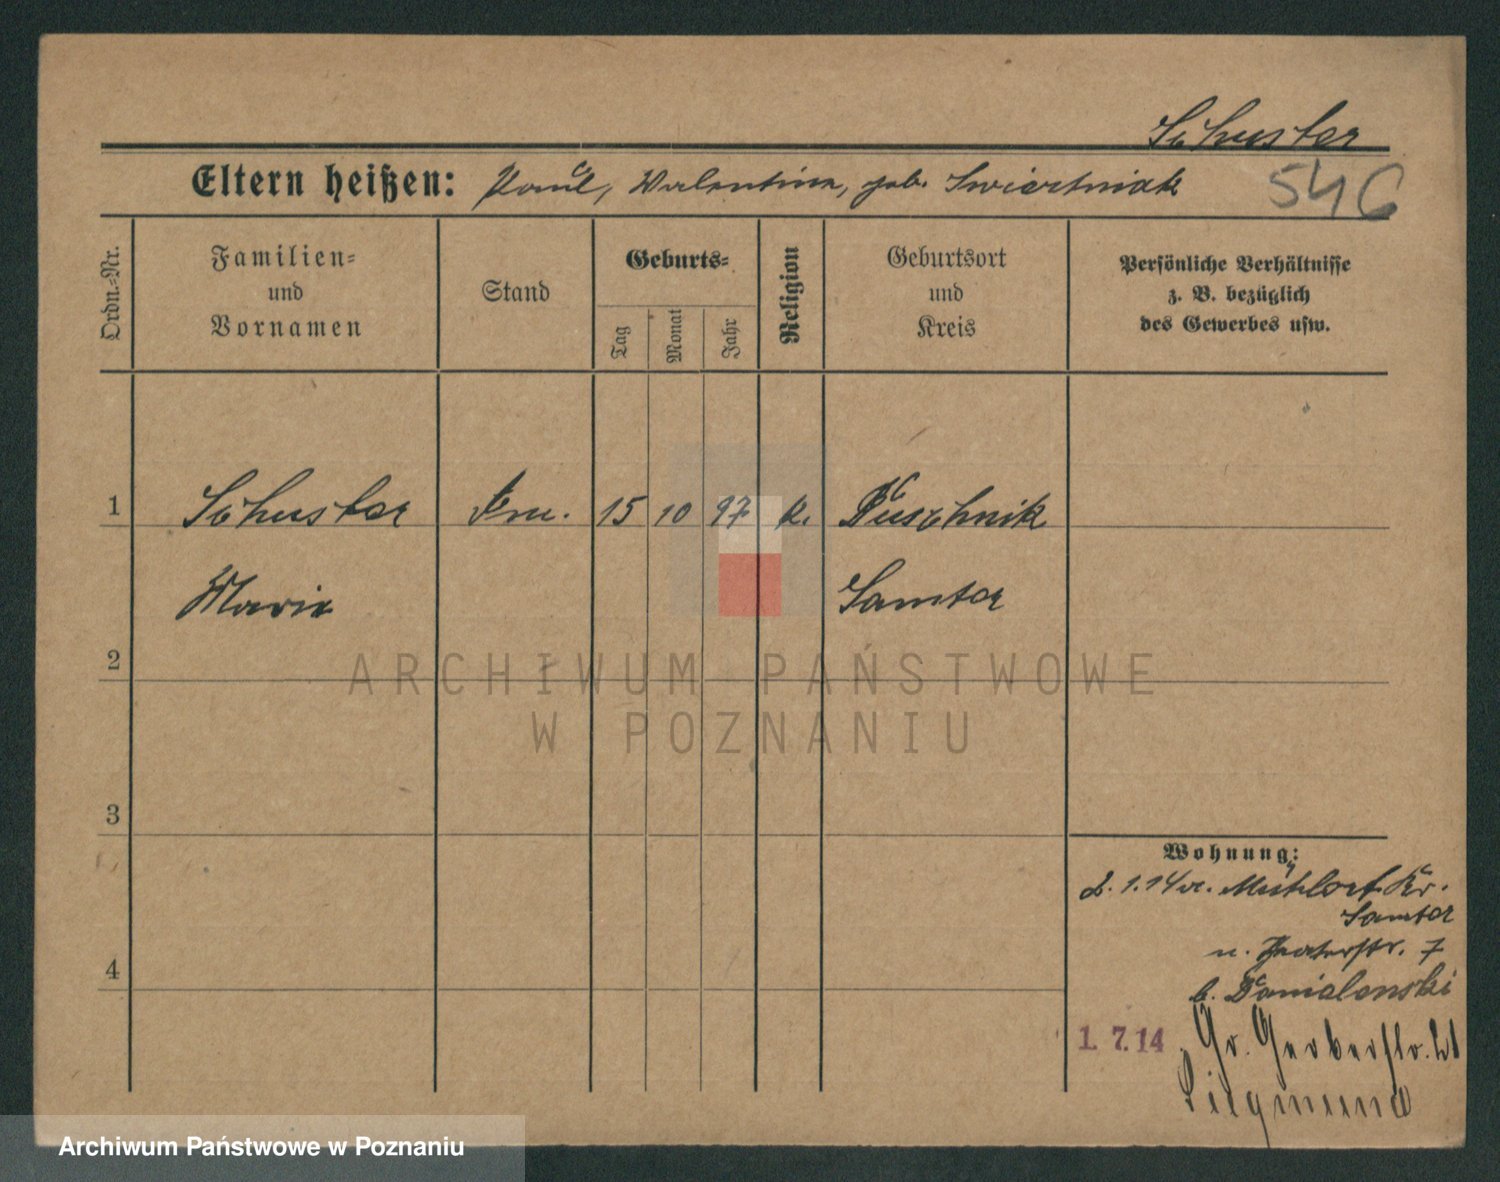 Schuster
Eltern heißen: Paul, Valentina, geb. Swiertniak
546
Ordn.-Nr.
Familien-
und
Vornamen
Stand
Geburts-
Tag
Monat
Jahr
Religion
Geburtsort
und
Kreis
Persönliche Verhältnisse
z. B. bezüglich
des Gewerbes usw.
1 Schuster 15 10 97 k. Duschnik
Maria Samter
2
ARCHIWUM PAŃSTWOWE
W POZNANIU
3
4
Wohnung:
2. 1. 14 v. Kr.
Samter
n. Theaterstr. 7
b. Danielenski
1. 7. 14 Gr. Gerberstr. 21
Siegmund
Archiwum Państwowe w Poznaniu